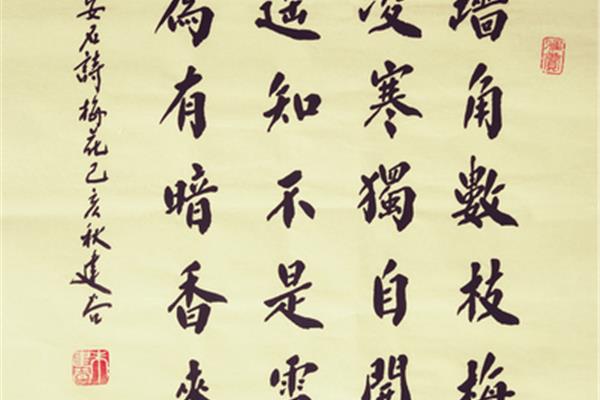 墙角數枝梅
凌寒獨自開
遥知不是雪
為有暗香來
安石詩梅花己亥秋建谷